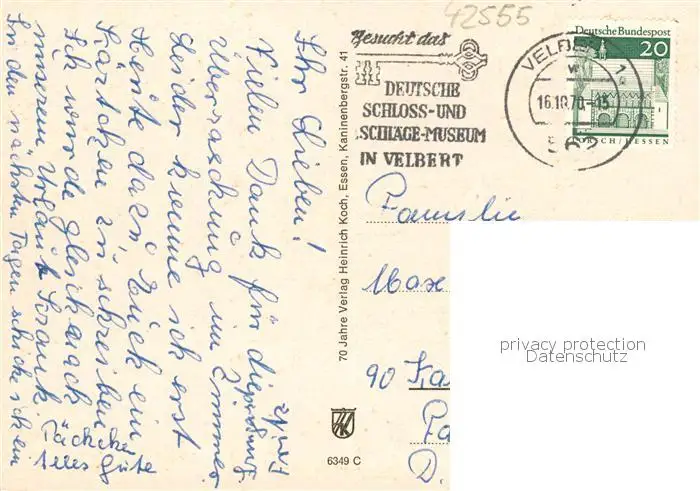 42555
Besucht das
DEUTSCHE
SCHLOSS-UND
SCHLÄGE-MUSEUM
IN VELBERT
VELBERT 1
16.10.70-13
562
Deutsche Bundespost
20
LORSCH/HESSEN
Ihr Lieben!
Vielen Dank für die
Überraschung im Zimmer
Leider komme ich erst
Heute dazu Euch ein
Kärtchen zu schreiben
Ich wurde gleich nach
unserem Urlaub krank
In den nächsten Tagen schicke ich ein
Päckchen
Alles Gute
70 Jahre Verlag Heinrich Koch, Essen, Kaninenbergstr. 41
6349 C
Familie
Max
90 Ka
D.
privacy protection
Datenschutz